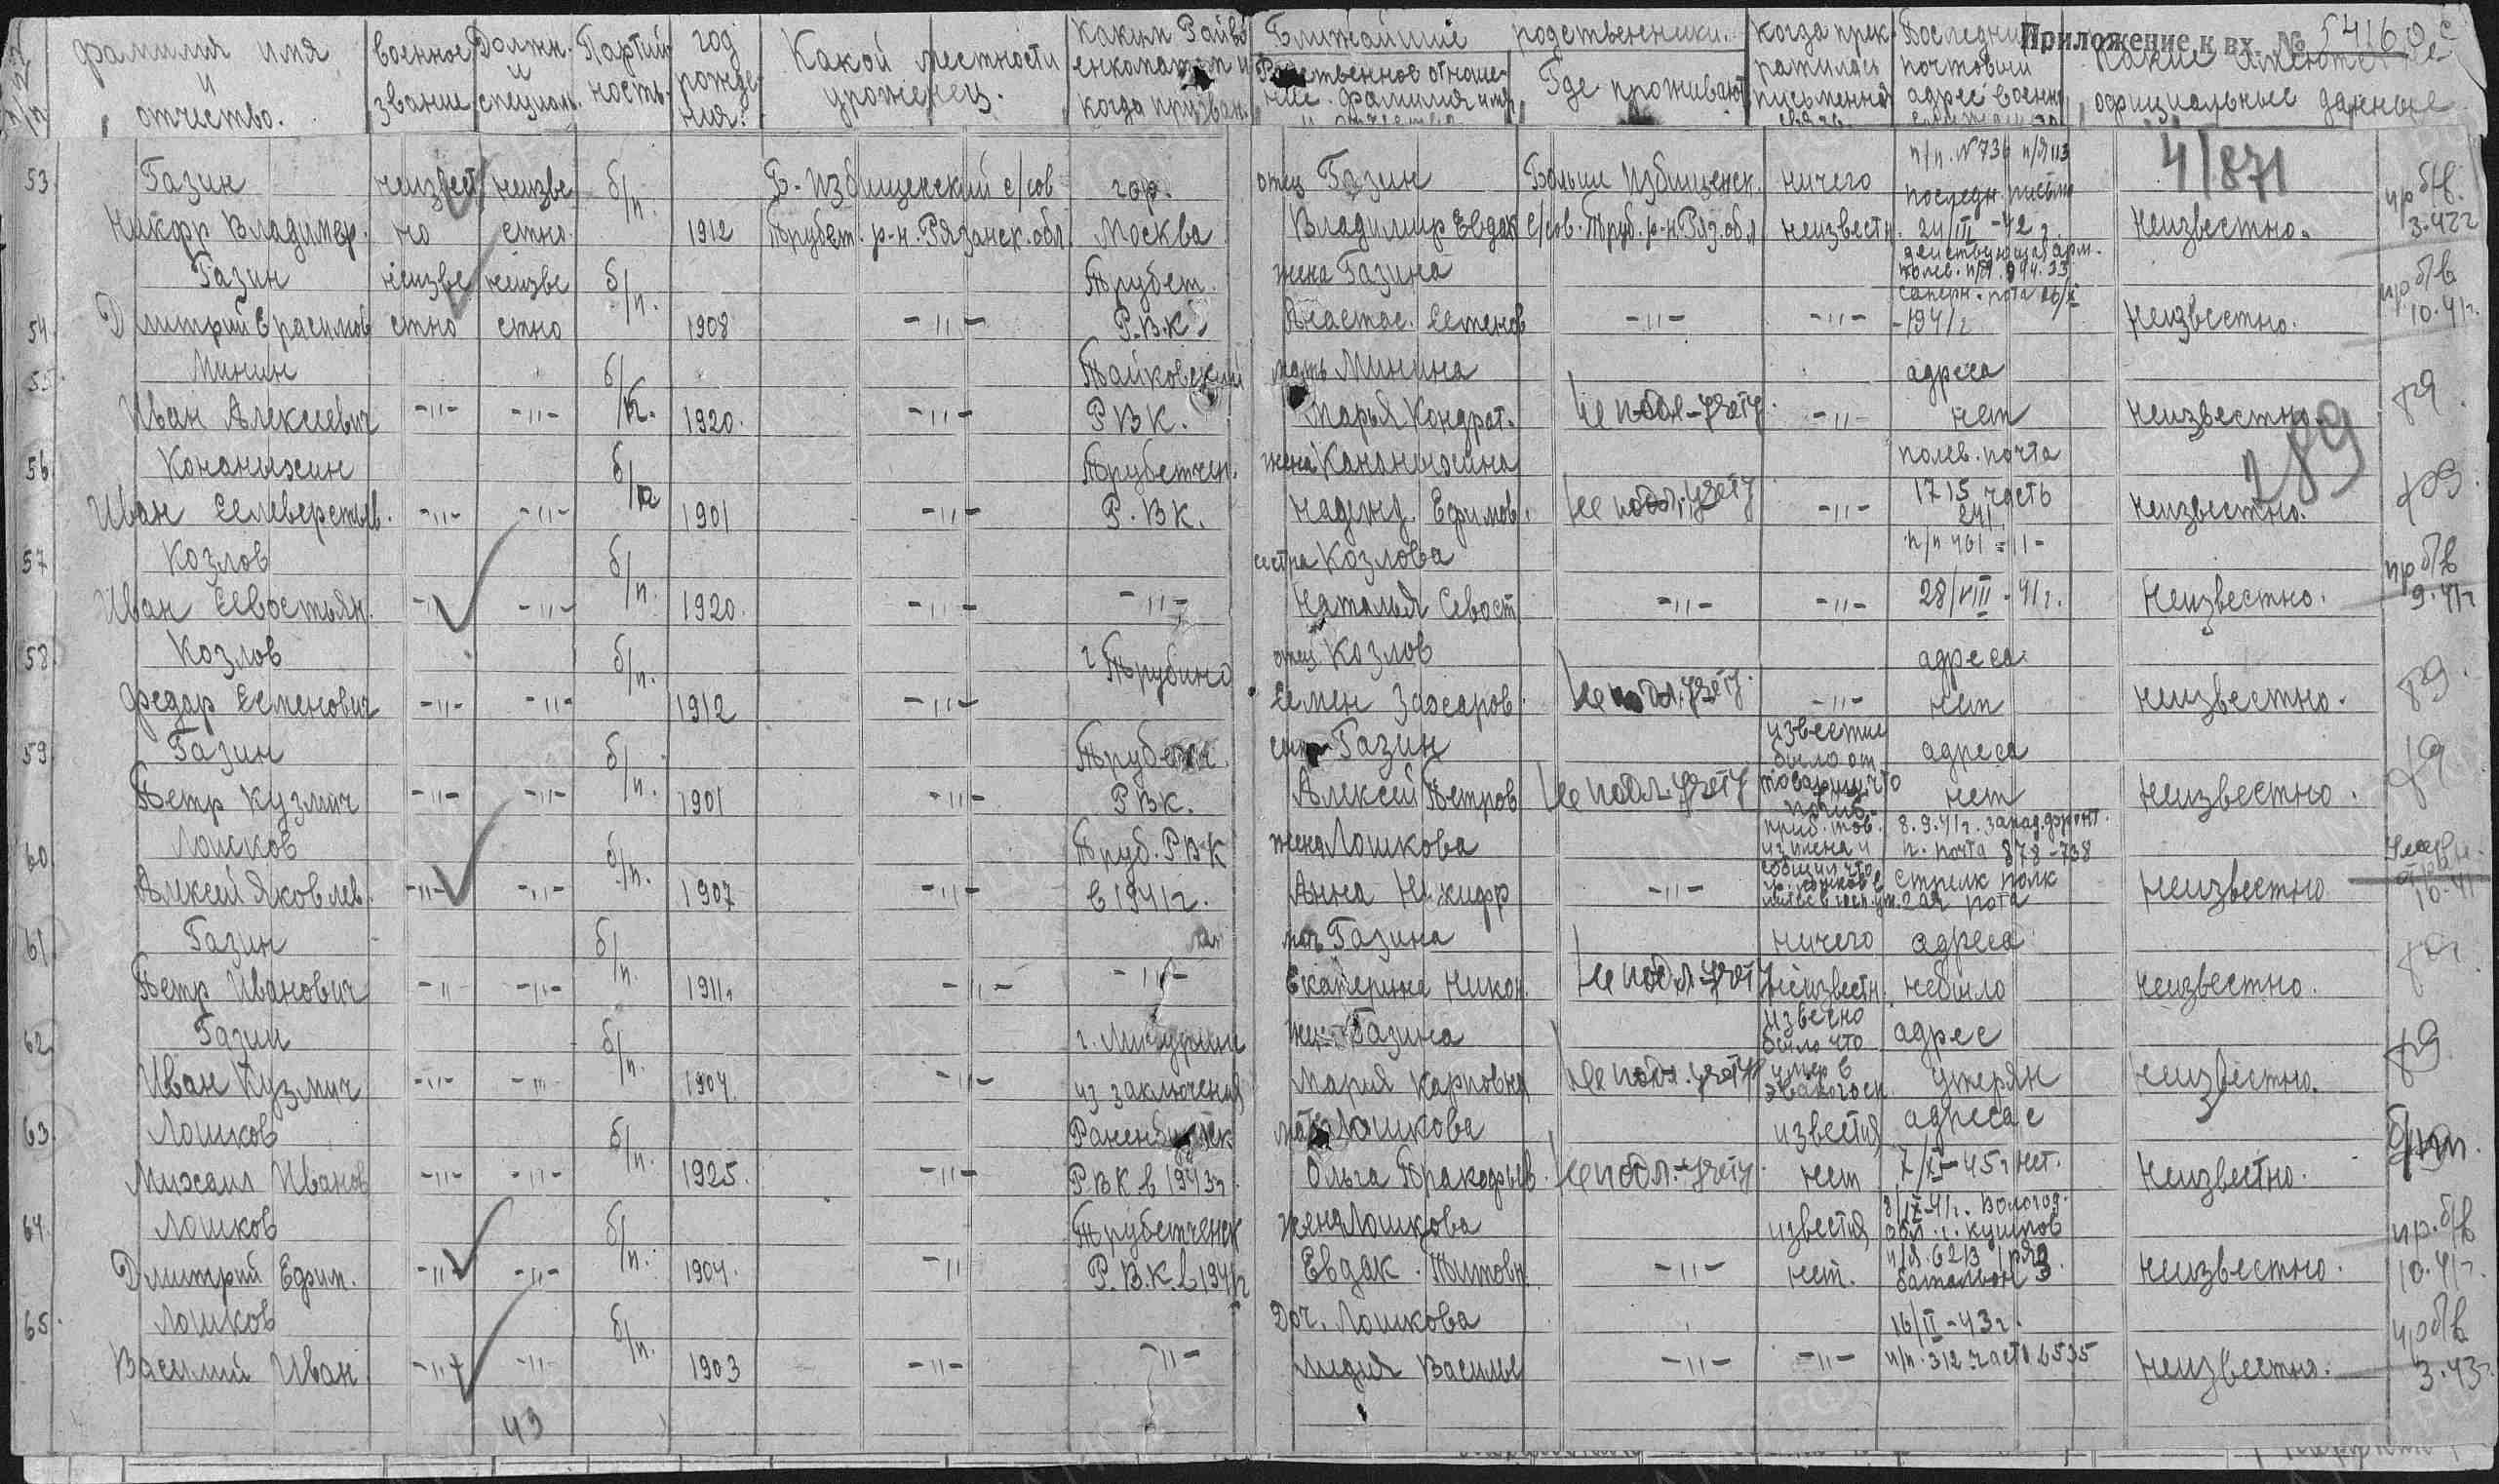 Приложение к вх. № 54160с
№ п/п фамилия имя и отчество. военное звание Должн. и специальн. Партийность. год рождения. Какой местности уроженец. Каким Райвоенкоматом и когда призван. Ближайшие родственники. Родственное отношение. фамилия имя и отчество Где проживают когда прекратилась письменная связь. Последний почтовый адрес военно Какие имеются официальные данные
4/871
53 Газин неизвест неизве б/п. Б-Избищенский с/сов гор. отец Газин Больше Избищенск. ничего п/п. N736 п/я 113 последн. письмо пр б/в.
Никфр Владимер. но стно. 1912 Трубет. р-н. Рязанск. обл Москва Владимир Евдак с/сов. Труб. р-н. Ряз. обл неизвестн. 24/III-42 г. Неизвестно. 3.42г
Газин неизве неизве б/п. Трубет. жена Газина действующая арм. полев. п/я. 994. 33 пр б/в
54 Дмитрий Ерасимов стно стно 1908 -"- Р.В.К. Анастас. Семенов -"- -"- саперн. рота 26/X -1941г Неизвестно. 10.41г.
55 Минин б/п. Чайковский мать Минина адреса
Иван Алексеевич -"- -"- 1920. -"- РВК. Марья Кондрат. Не подл-учету. -"- нет неизвестно.
189
56 Кананыхин б/п Трубетчен. жена Кананыхина полев. почта
Иван Селеверстыв. -"- -"- 1901 -"- Р.ВК. Надежд. Ефимов. Не подл. учету -"- 1715 часть 241 неизвестно.
57 Козлов б/п. сестра Козлова п/п 461 -"- пр б/в
Иван Севостьян. -"- -"- 1920. -"- -"- Наталья Севост -"- -"- 28/VIII-41г. Неизвестно. 9.41г
58 Козлов б/п. г Трубино отец Козлов адреса
Федар Семенович -"- -"- 1912 -"- Семен Захаров. Не подл. учету. -"- нет неизвестно.
59 Газин б/п. Трубетч. сын Газин известие было от адреса
Петр Кузмич -"- -"- 1901 -"- РВК. Алексей Петров Не подл. учету товарищ что погиб. нет неизвестно.
60 Лошков б/п. Труб. РВК жена Лошкова приб. тов. из плена и 8.9.41г. запад. фронт. п. почта 878-738
Алексей Яковлев. -"- -"- 1907 -"- в 1941г. Анна Никифр -"- сообщил что стрелк полк 2ая рота Неизвестно 10-41
61 Газин б/п. мать Газина ничего адреса
Петр Иванович -"- -"- 1911г -"- -"- Екатерина Никон. Не подл-учет неизвестн. небыло неизвестно.
62 Газин б/п. жен Газина извесно было что адрес
Иван Кузмич -"- -"- 1904. -"- из заключения Мария Карповна Не подл. учету умер в эвакогосп. утерян неизвестно.
63 Лошков б/п. Раненбургск мать Лошкова известия адреса с
Михаил Иванов -"- -"- 1925. -"- РВК в 1943г. Ольга Пракофьев. Не подл.-учету. нет 7/XI-45г нет. Неизвестно.
64. Лошков б/п. Трубетченск жена Лошкова известия 8/IX-41г. Вологод. обл. пр. б/в
Дмитрий Ефим. -"- -"- 1904. -"- Р.В.К. в 1941г Евдак. Титовн -"- нет. п/я. 6213 батальон 3 неизвестно. 10.41г.
65. Лошков б/п. Доч. Лошкова 16/II-43г. пр б/в
Василий Иван -"- -"- 1903 -"- -"- лидия Василье -"- -"- п/п. 312 часть 6535 неизвестно. 3.43г
43